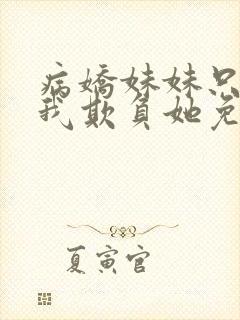 病嬌妹妹只
我欺負她
夏寅官